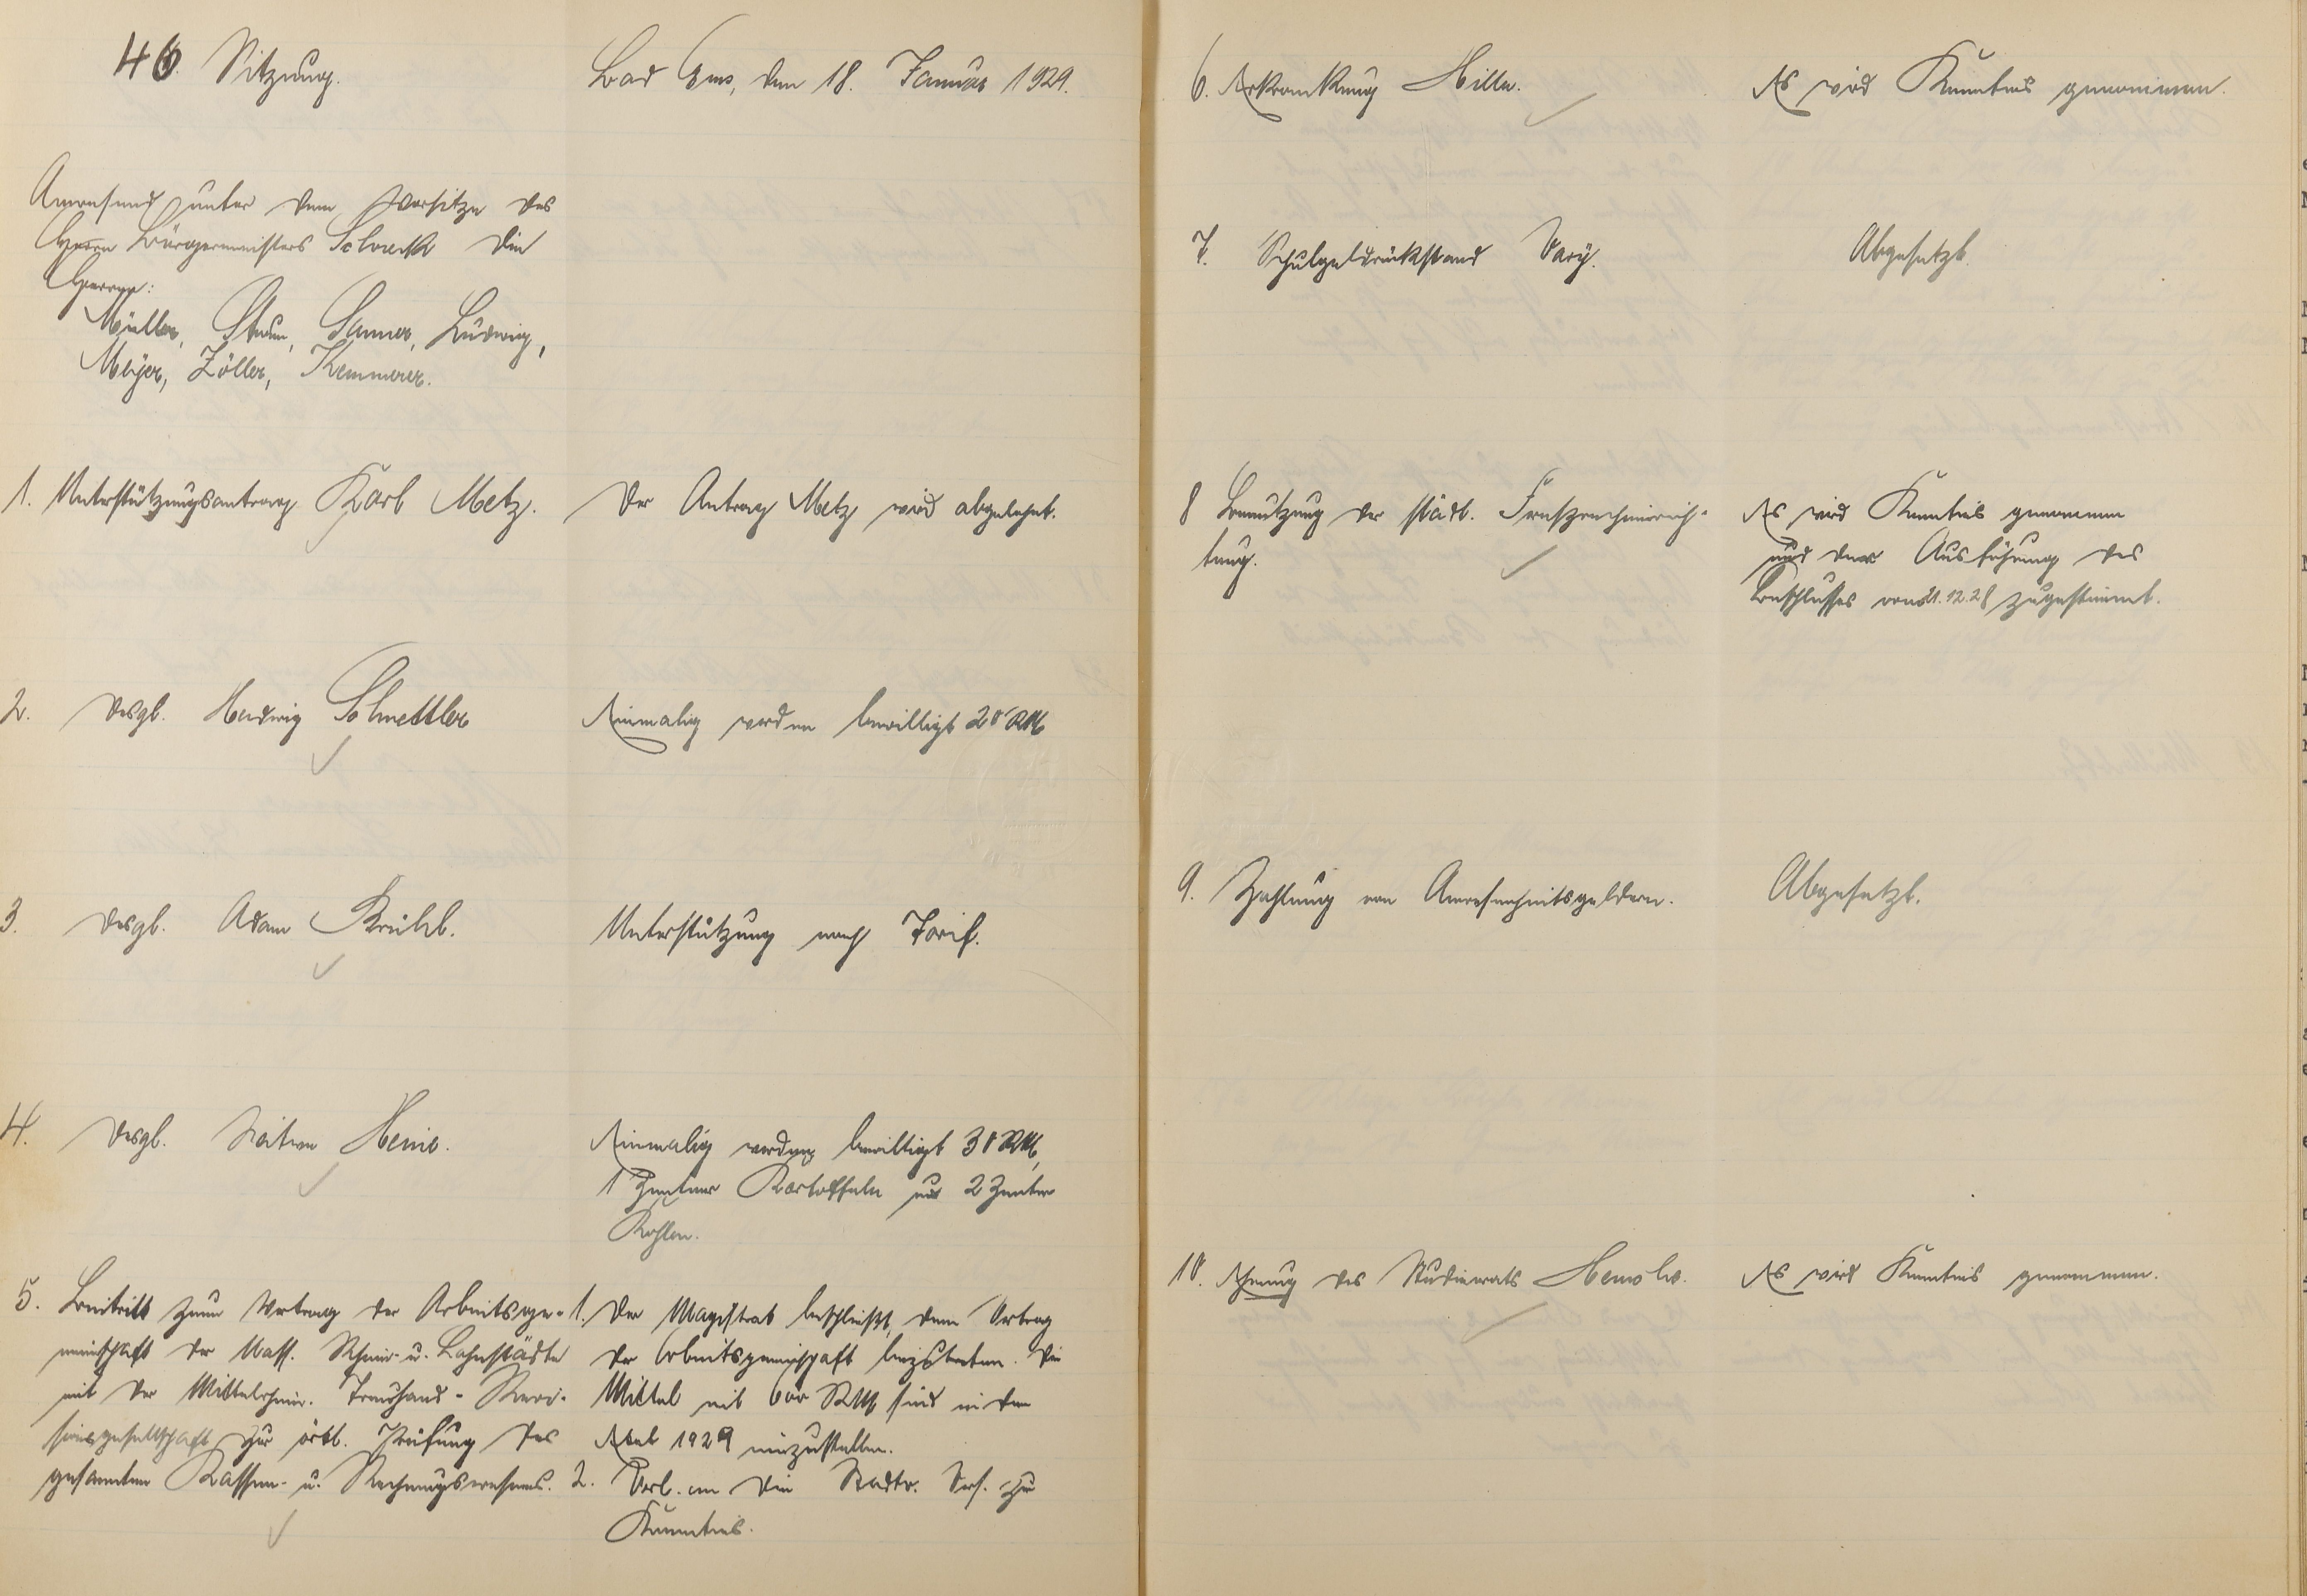 46. Sitzung.
Bad Ems, den 18. Januar 1929.
Anwesend unter dem Vorsitze des
Herrn Bürgermeisters Schreck die
Herren:
Müller, Sturm, Sanner, Ludwig,
Meyer, Zöller, Kemmerer.
1. Unterstützungsantrag Karl Metz.
Der Antrag Metz wird abgelehnt.
2. desgl. Hedwig Schmettler
Einmalig werden bewilligt 20 RM
3. desgl. Adam Brühl.
Unterstützung nach Tarif.
4. desgl. Witwe Hein.
Einmalig werden bewilligt 30 RM,
1 Zentner Kartoffeln und 2 Zentner
Kohlen.
5. Beitritt zum Vertrag der Arbeitsge-
meinschaft der Nass. Rhein- u. Lahnstädte
mit der Mittelrhein. Treuhand- Revi-
sionsgesellschaft zur örtl. Prüfung des
gesamten Kassen- u. Rechnungswesens.
1. Der Magistrat beschließt, dem Vertrag
der Arbeitsgemeinschaft beizutreten. Die
Mittel mit 600 RM sind in den
Etat 1929 einzustellen.
2. Vorl. an die Stadtv. Vers. zur
Kenntnis.
6. Erkrankung Hille.
Es wird Kenntnis genommen.
7. Schulgeldrückstand Vary.
Abgesetzt.
8 Benutzung der städt. Fernsprecheinrich-
tung.
Es wird Kenntnis genommen
und der Ausführung des
Beschlusses vom 21.12.28 zugestimmt.
9. Zahlung von Anwesenheitsgeldern.
Abgesetzt.
10. Ehrung des Studienrats
Es wird Kenntnis genommen.